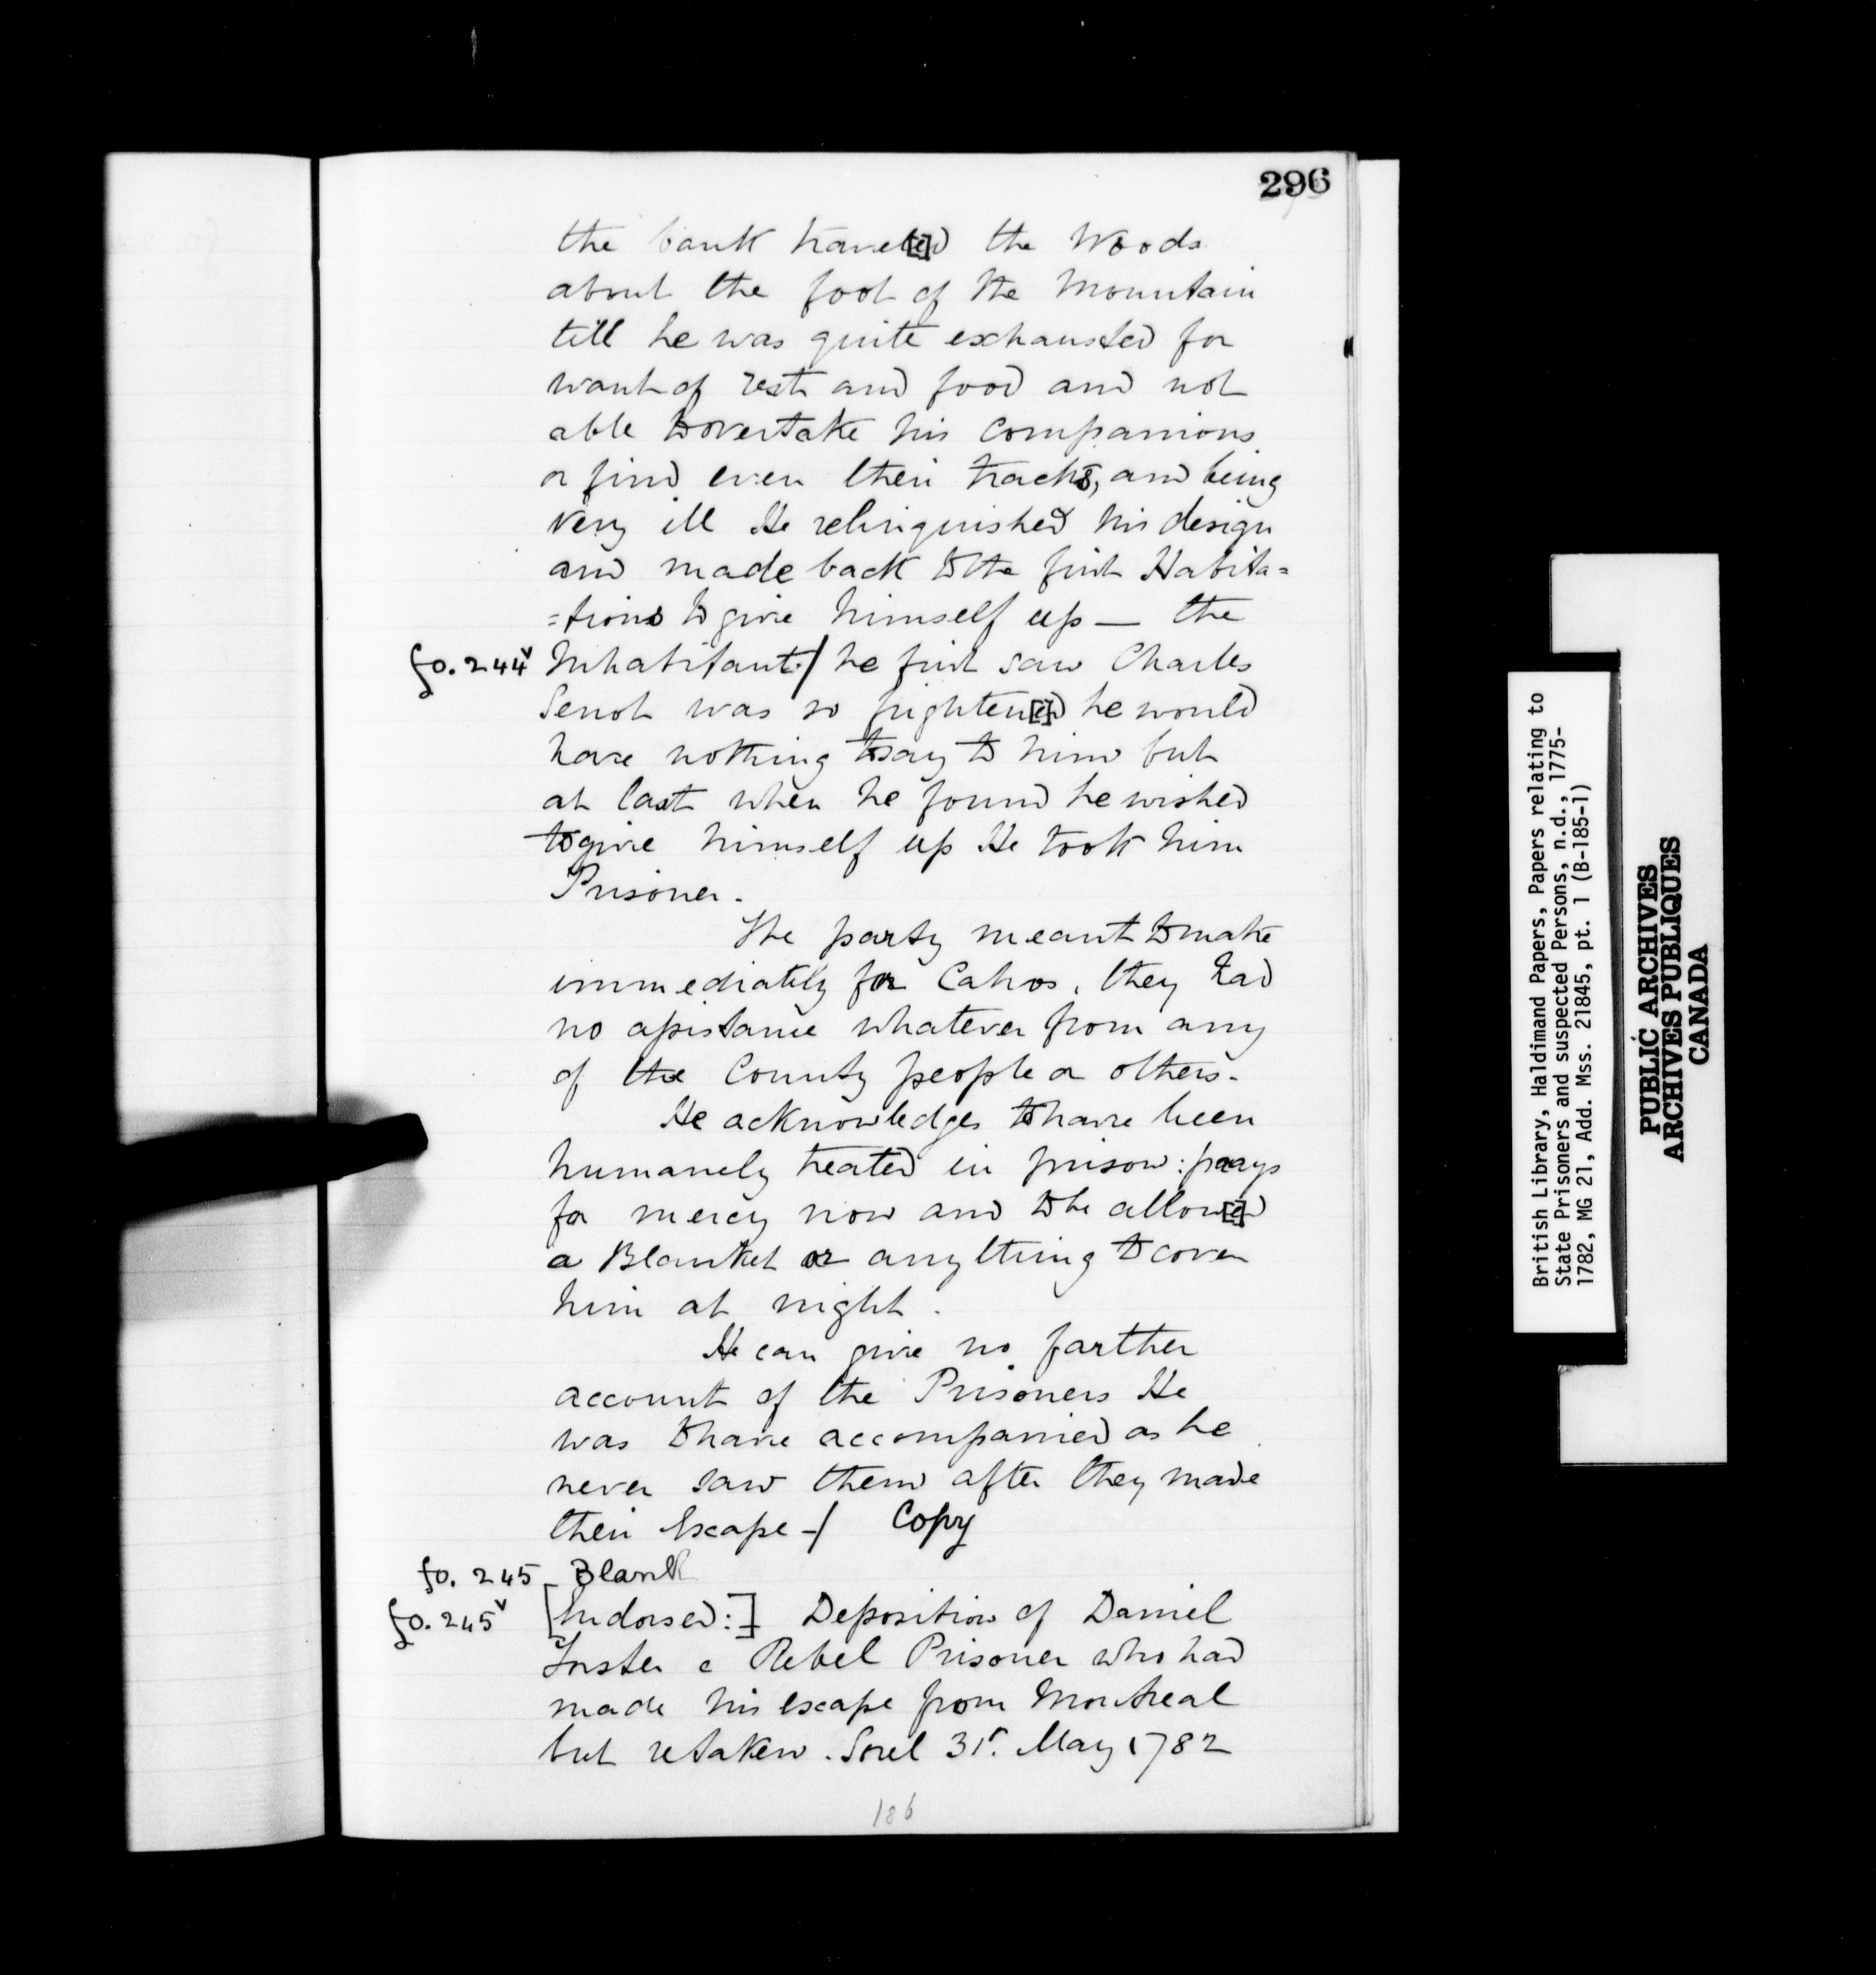 296
the bank travel[e]d the Woods
about the foot of the Mountain
till he was quite exhausted for
want of rest and food and not
able to overtake his Companions
or find even their tracks, and being
very ill He relinquished his design
and made back to the first Habita=
=tions to give himself up — the
fo. 244v Inhabitant/ he first saw Charles
Senot was so frighten[e]d he would
have nothing to say to him but
at last when he found he wished
to give himself up He took him
Prisoner.
The party meant to make
immediately for Cahos, they had
no assistance whatever from any
of the County people or others.
He acknowledges to have been
humanely treated in prison: prays
for mercy now and to be allow[e]d
a Blanket or anything to cover
him at night.
He can give no farther
account of the Prisoners He
was to have accompanied as he
never saw them after they made
their Escape -/ Copy
fo. 245 Blank
fo. 245v [Indorsed:] Deposition of Daniel
Foster a Rebel Prisoner who had
made his escape from Montreal
but retaken. Sorel 31st. May 1782
186
British Library, Haldimand Papers, Papers relating to
State Prisoners and suspected Persons, n.d., 1775-
1782, MG 21, Add. Mss. 21845, pt. 1 (B-185-1)
PUBLIC ARCHIVES
ARCHIVES PUBLIQUES
CANADA